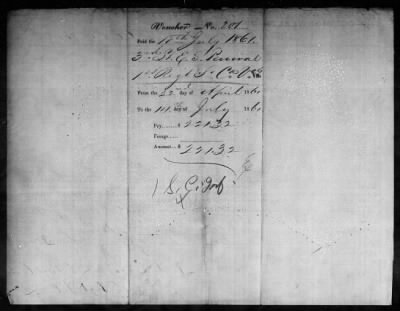 Voucher No. 201
Paid the 10th July 1861
3rd Lt. E. S. Percival
1st Regt S. C. Vols
From the 22 day of April 1861
To the 10th day of July 1861
Pay.....$ 221.32
Forage....
Amount...$ 221.32
1 S. C. Inf.